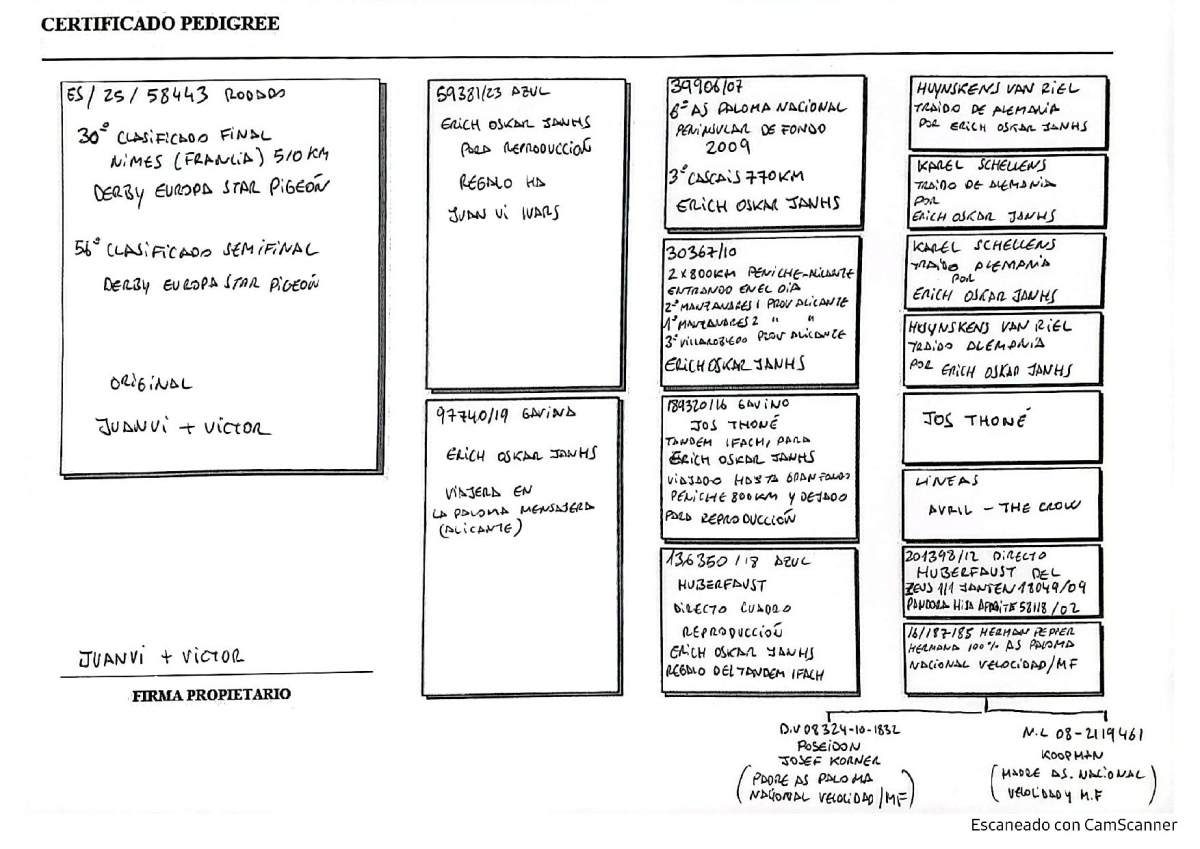 CERTIFICADO PEDIGREE
ES/25/58443 RODADO
30º CLASIFICADO FINAL
NIMES (FRANCIA) 510 KM
DERBY EUROPA STAR PIGEÓN
56º CLASIFICADO SEMIFINAL
DERBY EUROPA STAR PIGEÓN
ORIGINAL
JUANVI + VICTOR
JUANVI + VICTOR
FIRMA PROPIETARIO
59381/23 AZUL
ERICH OSKAR JANHS
PARA REPRODUCCIÓN
REGALO HA
JUAN VI IVARS
97740/19 GAVINA
ERICH OSKAR JANHS
VIAJERA EN
LA PALOMA MENSAJERA
(ALICANTE)
39906/07
6º AS PALOMA NACIONAL
PENINSULAR DE FONDO
2009
3º CASCAIS 770KM
ERICH OSKAR JANHS
30367/10
2 x 800KM PENICHE-ALICANTE
ENTRANDO EN EL DIA
2º MANZANARES 1 PROV ALICANTE
1º MANZANARES 2 " "
3º VILLAROBLEDO PROV ALICANTE
ERICH OSKAR JANHS
189320/16 GAVINO
JOS THONÉ
TANDEM IFACH, PARA
ERICH OSKAR JANHS
VIAJADO HASTA GRAN FONDO
PENICHE 800KM Y DEJADO
PARA REPRODUCCIÓN
136350/18 AZUL
HUBERFAUST
DIRECTO CUADRO
REPRODUCCIÓN
ERICH OSKAR JANHS
REGALO DEL TANDEM IFACH
HUYNSKENS VAN RIEL
TRAIDO DE ALEMANIA
POR ERICH OSKAR JANHS
KAREL SCHELLENS
TRAIDO DE ALEMANIA
POR
ERICH OSKAR JANHS
KAREL SCHELLENS
TRAIDO ALEMANIA
POR
ERICH OSKAR JANHS
HUYNSKENS VAN RIEL
TRAIDO ALEMANIA
POR ERICH OSKAR JANHS
JOS THONÉ
LINEAS
AVRIL - THE CROW
201398/12 DIRECTO
HUBERFAUST DEL
ZEUS 1/1 JANTEN 18049/09
PANDORA HIJA AFRODITE 58118/02
16/187-185 HERMAN PEPPER
HERMANA 100% AS PALOMA
NACIONAL VELOCIDAD/MF
D.V 08324-10-1832
POSEIDON
JOSEF KORNER
(PADRE AS PALOMA
NACIONAL VELOCIDAD/MF)
N.L 08-2119461
KOOPMAN
(MADRE AS. NACIONAL
VELOCIDAD Y M.F)
Escaneado con CamScanner